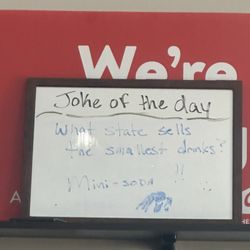 We're
Joke of the day
What state sells
the smallest drinks?
Mini-soda !!
A
HE